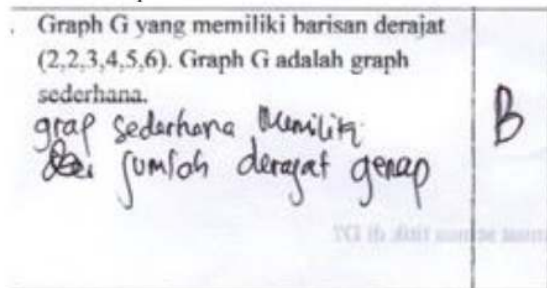 . Graph G yang memiliki barisan derajat
(2,2,3,4,5,6). Graph G adalah graph
sederhana.
graf sederhana Memiliki
jumlah derajat genap
B